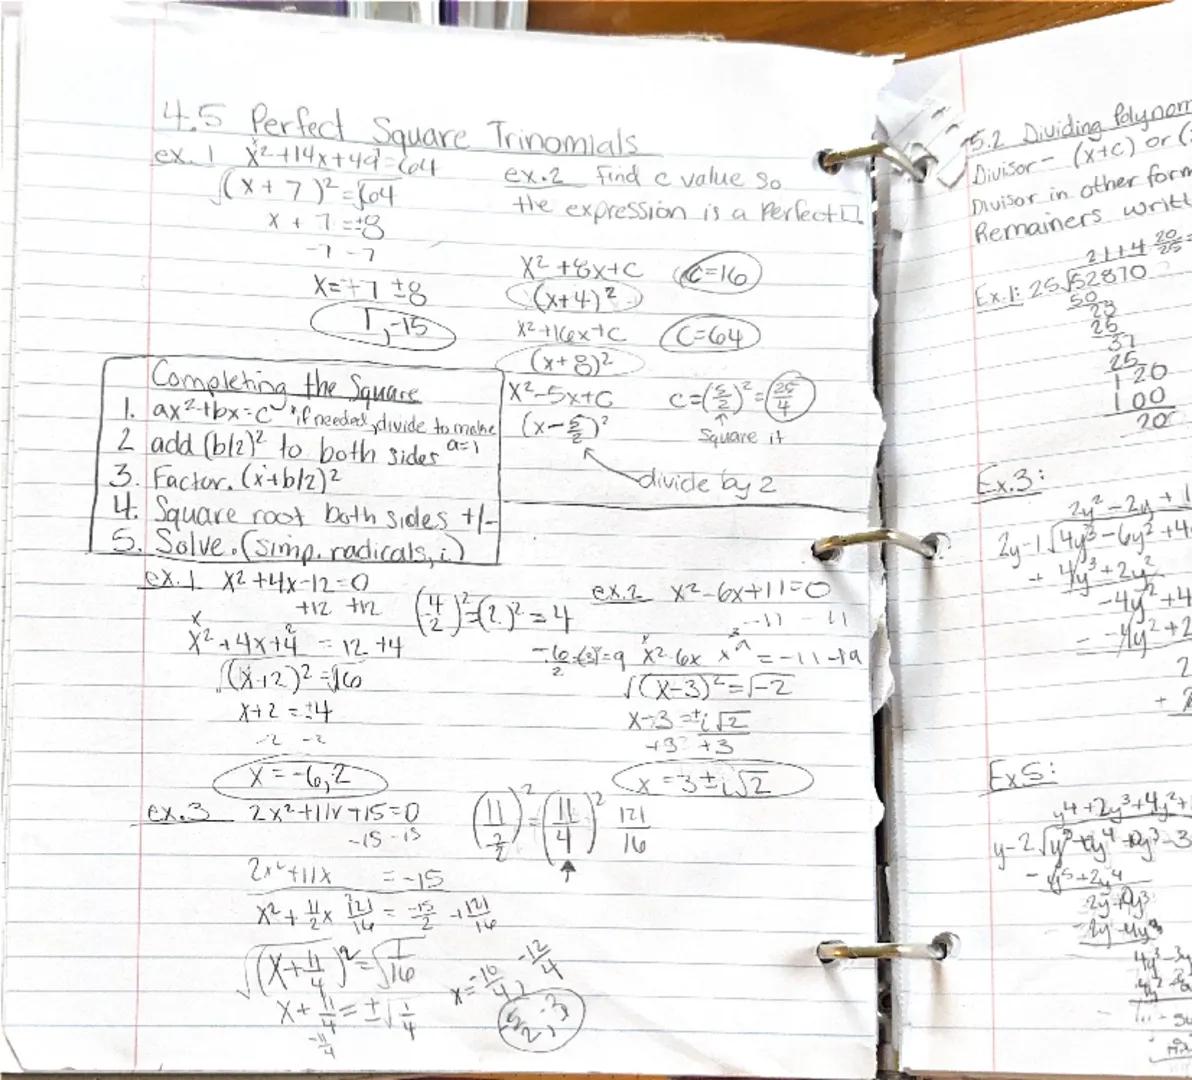 4.5 Perfect Square Trinomials
ex. 1 x²+14x+49=64
√(x + 7)² = √64
x + 7 = ±8
-7 -7
x = -7 ±8
1, -15
ex.2 Find c value so
the expression is a Perfect □.
x² +8x+c c=16
(x+4)²
x²+16x+c c=64
(x+8)²
x²-5x+c c=(5/2)²=25/4
(x-5/2)² Square it
divide by 2
Completing the Square
1. ax²+bx=c *if needed, divide to make a=1
2 add (b/2)² to both sides
3. Factor. (x+b/2)²
4. Square root both sides +/-
5. Solve. (simp. radicals, i)
ex. 1 x² +4x-12=0
+12 +12 (4/2)²=(2)²=4
x² +4x+4 = 12 +4
√(x+2)² = √16
x+2 = ±4
-2 -2
x = -6, 2
ex.2 x²-6x+11=0
-11 -11
x²-6x = -11+9
√(x-3)²=√-2
x-3 = ±i√2
+3 +3
x = 3±i√2
ex.3 2x²+11x+15=0
-15 -15
(11/2/2)²=(11/4)² 121/16
2x²+11x = -15
x² + 11/2x 121/16 = -15/2 +121/16
√(x+11/4)²=√1/16
x + 11/4 = ±√1/4
-11/4
x= -10/4, -12/4
-5/2, -3
5.2 Dividing Polynom
Divisor - (x+c) or
Divisor in other form
Remainers writt
2114 20/25
Ex.1: 25√52870
50
25
37
25
120
100
20
Ex.3:
2y²-2y+1
2y-1√4y³-6y²+4
+ 4y³+2y²
-4y²+4
-4y²+2
2
Ex5:
y⁴+2y³+4y²+